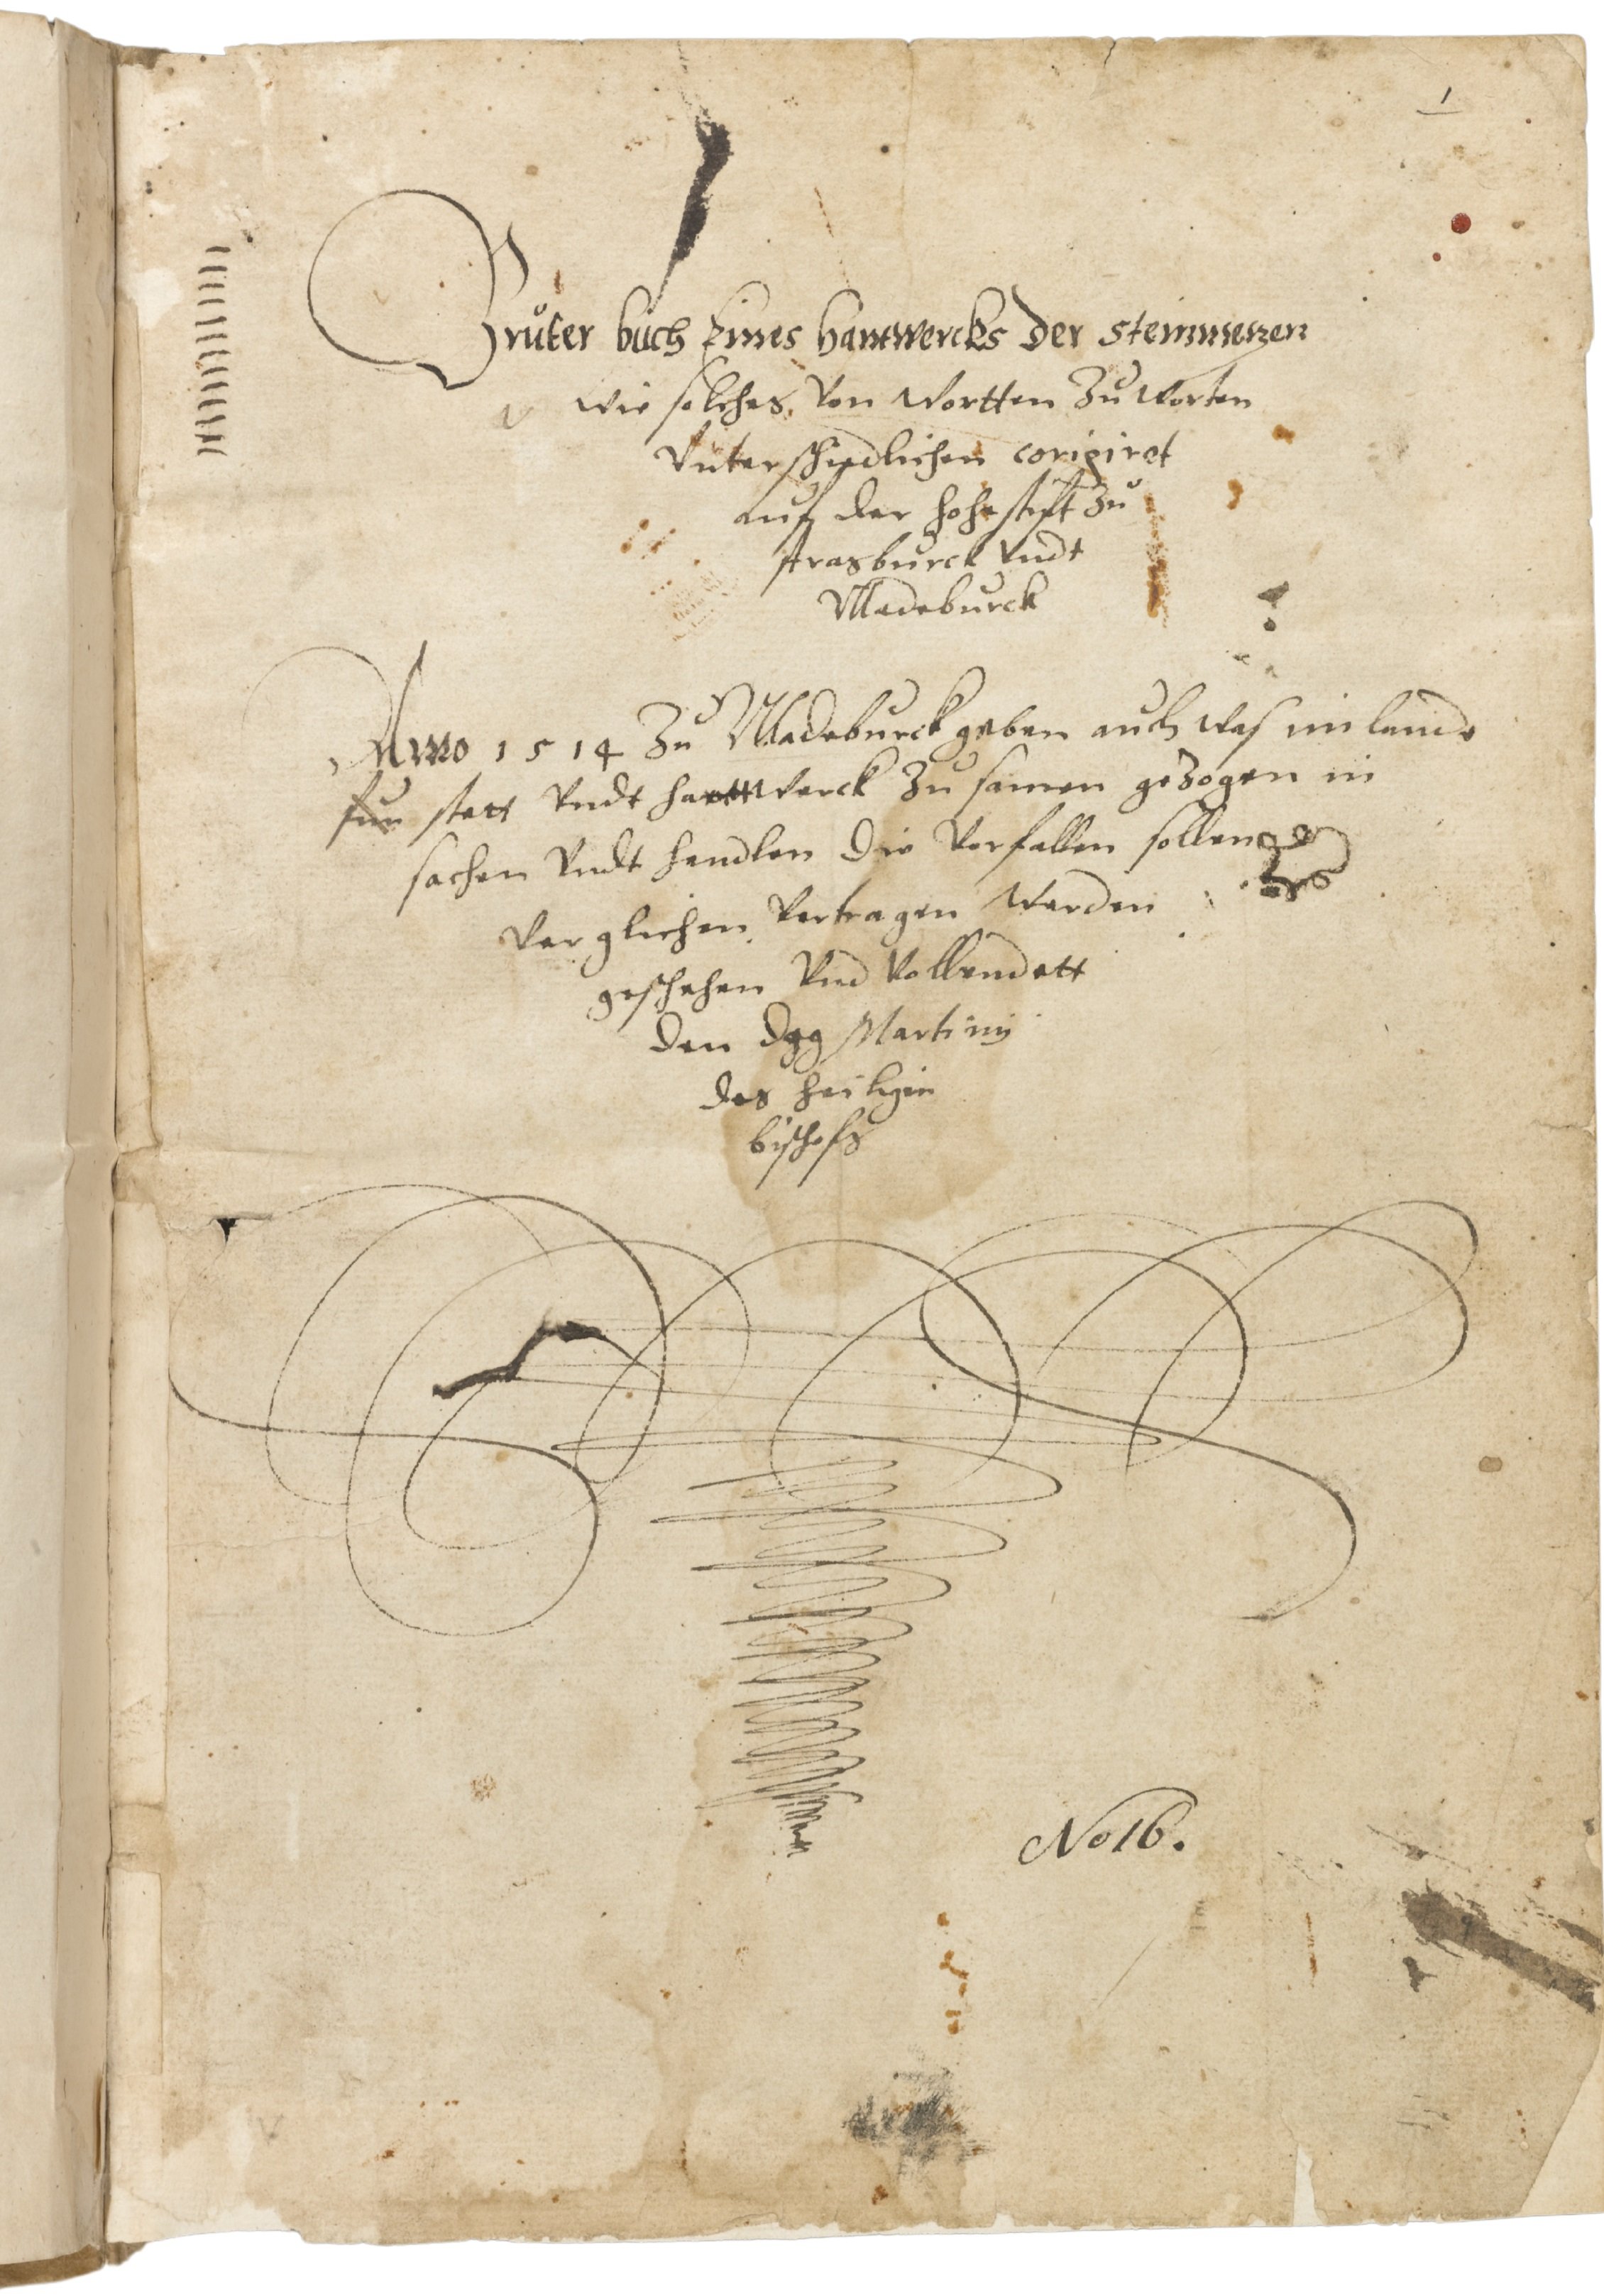 1
Bruter buch Eines hantwercks der steinmetzen
wie solches von wortten zu worten
unterschiedlichen corigiret
auf der hohe stift zu
strasburck undt
Madeburck
Anno 1514 zu Madeburck geben auch was im lande
fur stett undt hanttwerck zu samen gezogen in
sachen undt handlen die vorfallen sollen
verglichen vertragen werden
geschehen und vollendett
den dag Martiniy
des heiligin
bischofs
No 16.